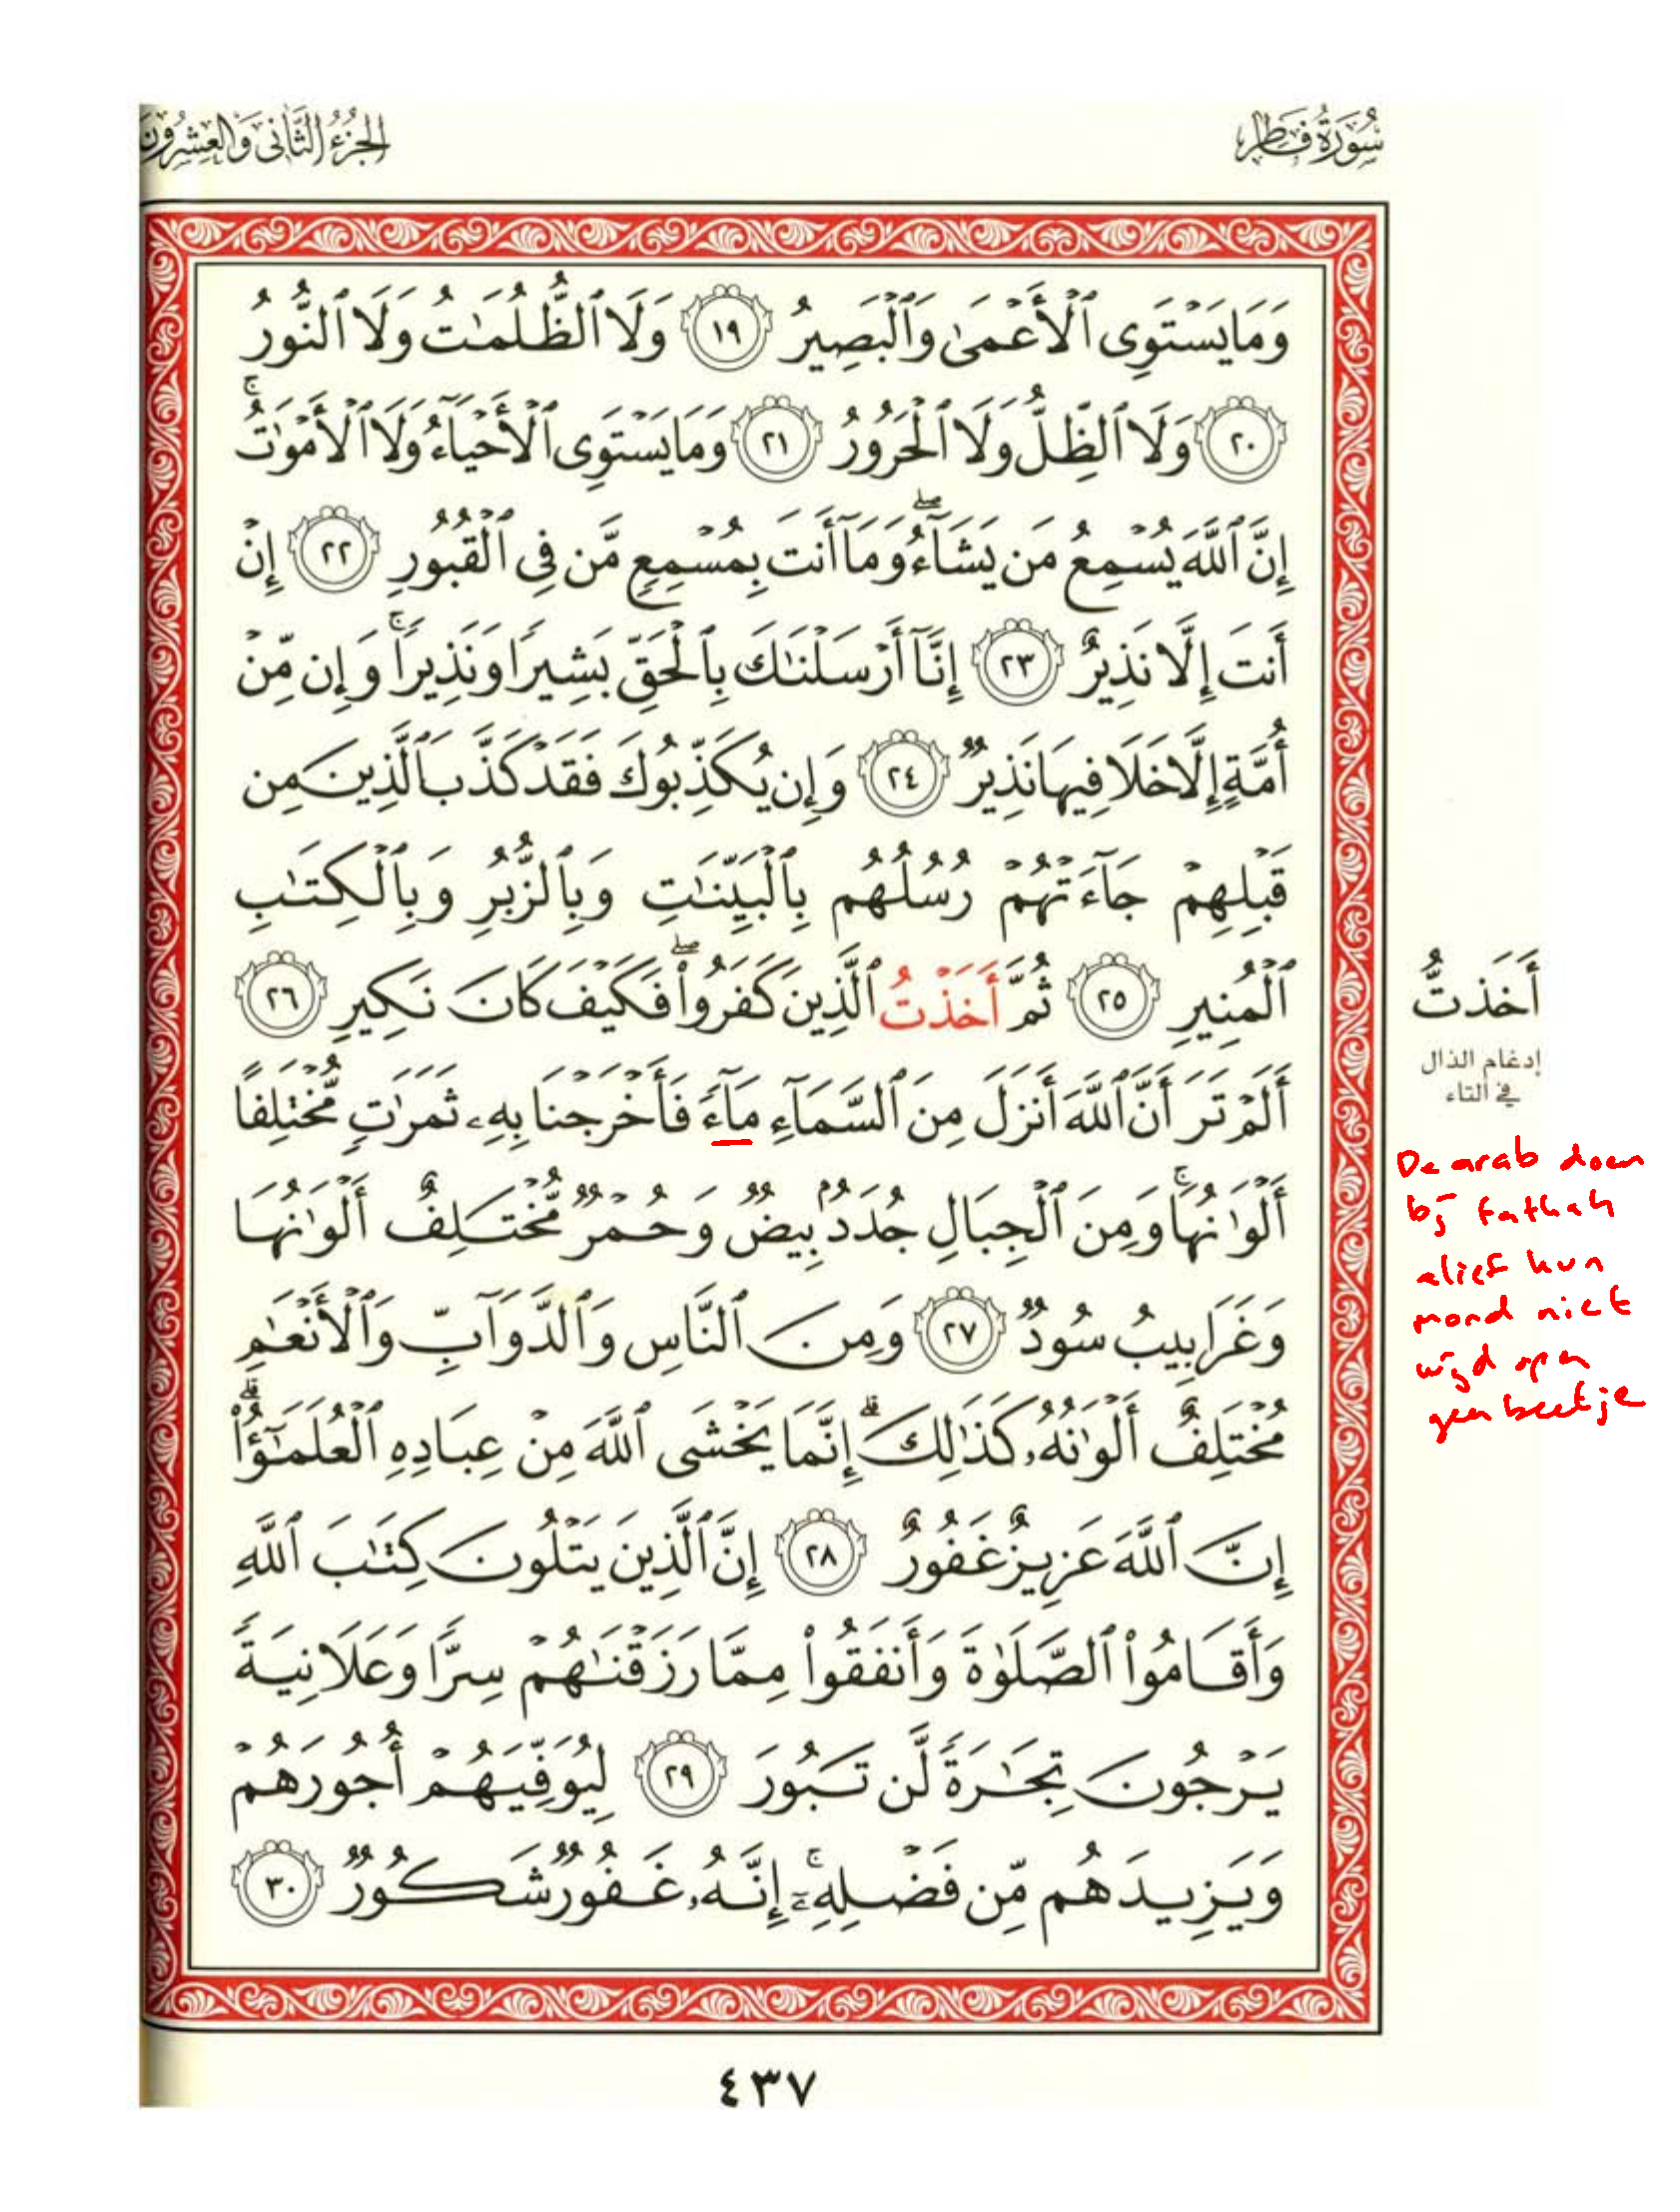 سُورَةُ فَاطِرٍ
الجُزْءُ الثَّانِي وَالعِشْرُونَ
وَمَا يَسْتَوِى ٱلْأَعْمَىٰ وَٱلْبَصِيرُ ١٩ وَلَا ٱلظُّلُمَٰتُ وَلَا ٱلنُّورُ
٢٠ وَلَا ٱلظِّلُّ وَلَا ٱلْحَرُورُ ٢١ وَمَا يَسْتَوِى ٱلْأَحْيَآءُ وَلَا ٱلْأَمْوَٰتُ ۚ
إِنَّ ٱللَّهَ يُسْمِعُ مَن يَشَآءُ ۖ وَمَآ أَنتَ بِمُسْمِعٍ مَّن فِى ٱلْقُبُورِ ٢٢ إِنْ
أَنتَ إِلَّا نَذِيرٌ ٢٣ إِنَّآ أَرْسَلْنَٰكَ بِٱلْحَقِّ بَشِيرًا وَنَذِيرًا ۚ وَإِن مِّنْ
أُمَّةٍ إِلَّا خَلَا فِيهَا نَذِيرٌ ٢٤ وَإِن يُكَذِّبُوكَ فَقَدْ كَذَّبَ ٱلَّذِينَ مِن
قَبْلِهِمْ جَآءَتْهُمْ رُسُلُهُم بِٱلْبَيِّنَٰتِ وَبِٱلزُّبُرِ وَبِٱلْكِتَٰبِ
ٱلْمُنِيرِ ٢٥ ثُمَّ أَخَذْتُ ٱلَّذِينَ كَفَرُوا۟ ۖ فَكَيْفَ كَانَ نَكِيرِ ٢٦
أَلَمْ تَرَ أَنَّ ٱللَّهَ أَنزَلَ مِنَ ٱلسَّمَآءِ مَآءً فَأَخْرَجْنَا بِهِۦ ثَمَرَٰتٍ مُّخْتَلِفًا
أَلْوَٰنُهَا ۚ وَمِنَ ٱلْجِبَالِ جُدَدٌۢ بِيضٌ وَحُمْرٌ مُّخْتَلِفٌ أَلْوَٰنُهَا
وَغَرَابِيبُ سُودٌ ٢٧ وَمِنَ ٱلنَّاسِ وَٱلدَّوَآبِّ وَٱلْأَنْعَٰمِ
مُخْتَلِفٌ أَلْوَٰنُهُۥ كَذَٰلِكَ ۗ إِنَّمَا يَخْشَى ٱللَّهَ مِنْ عِبَادِهِ ٱلْعُلَمَٰٓؤُا۟ ۗ
إِنَّ ٱللَّهَ عَزِيزٌ غَفُورٌ ٢٨ إِنَّ ٱلَّذِينَ يَتْلُونَ كِتَٰبَ ٱللَّهِ
وَأَقَامُوا۟ ٱلصَّلَوٰةَ وَأَنفَقُوا۟ مِمَّا رَزَقْنَٰهُمْ سِرًّا وَعَلَانِيَةً
يَرْجُونَ تِجَٰرَةً لَّن تَبُورَ ٢٩ لِيُوَفِّيَهُمْ أُجُورَهُمْ
وَيَزِيدَهُم مِّن فَضْلِهِۦٓ ۚ إِنَّهُۥ غَفُورٌ شَكُورٌ ٣٠
أَخَذتُّ
إدغام الذال
في التاء
De arab doen
bij fathah
alief hun
mond niet
wijd open
geen beetje
٤٣٧